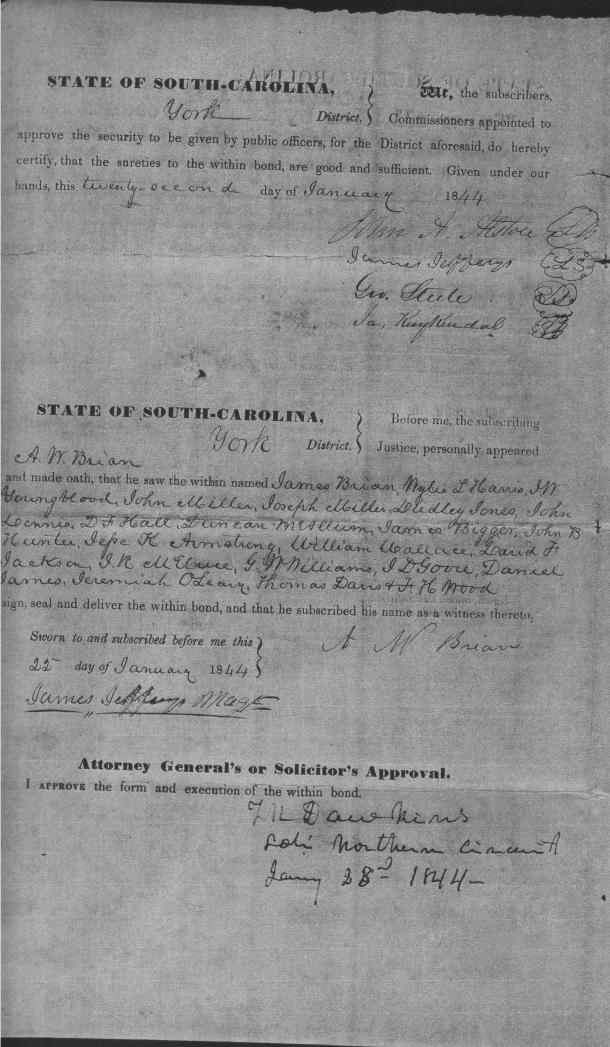 STATE OF SOUTH-CAROLINA,
York District.
We, the subscribers,
Commissioners appointed to
approve the security to be given by public officers, for the District aforesaid, do hereby
certify, that the sureties to the within bond, are good and sufficient. Given under our
hands, this twenty-second day of January 1844
John A. Alston LS
James Jefferys LS
Geo. Steele LS
Jas. Kuykendal LS
STATE OF SOUTH-CAROLINA,
York District.
Before me, the subscribing
Justice, personally appeared
A. W. Brian
and made oath, that he saw the within named James Brian, Wylie L Harris, J W
Youngblood, John Miller, Joseph Miller, Dudley Jones, John
D. F Hall, Duncan McCallum, James Bigger, John B
Hunter, Jesse K Armstrong, William Wallace, David F
Jackson, J. R McElwee, G. W Williams, J D Goore, Daniel
James, Jeremiah OLeary, Thomas Davis & F. H Wood
sign, seal and deliver the within bond, and that he subscribed his name as a witness thereto.
Sworn to and subscribed before me this
22 day of January 1844
A W Brian
James Jefferys Magt
Attorney General's or Solicitor's Approval.
I APPROVE the form and execution of the within bond.
T N Dawkins
Sol: Northern Circuit
Jany 28d 1844